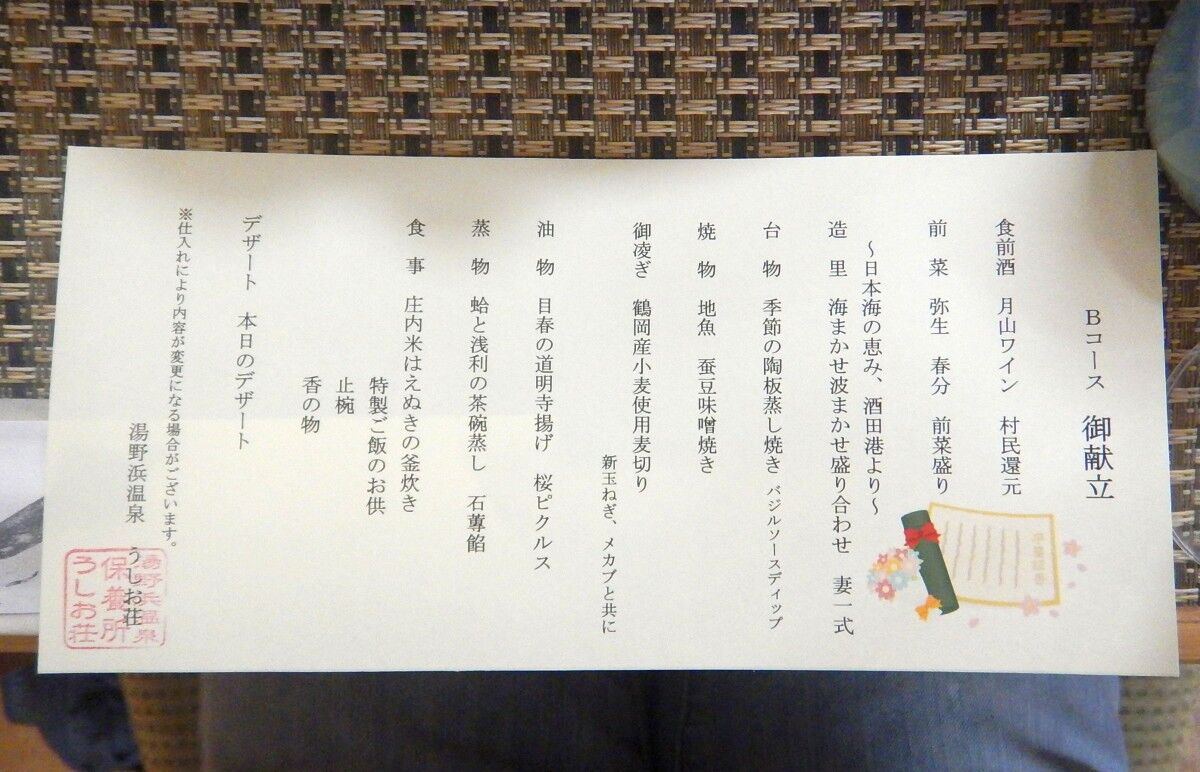 Bコース　御献立
食前酒　月山ワイン　村民還元
前　菜　弥生　春分　前菜盛り
～日本海の恵み、酒田港より～
造　里　海まかせ波まかせ盛り合わせ　妻一式
台　物　季節の陶板蒸し焼き　バジルソースディップ
焼　物　地魚　蚕豆味噌焼き
御凌ぎ　鶴岡産小麦使用麦切り
新玉ねぎ、メカブと共に
油　物　目春の道明寺揚げ　桜ピクルス
蒸　物　蛤と浅利の茶碗蒸し　石蓴餡
食　事　庄内米はえぬきの釜炊き
特製ご飯のお供
止椀
香の物
デザート　本日のデザート
※仕入れにより内容が変更になる場合がございます。
湯野浜温泉　うしお荘
湯野浜温泉
保養所
うしお荘